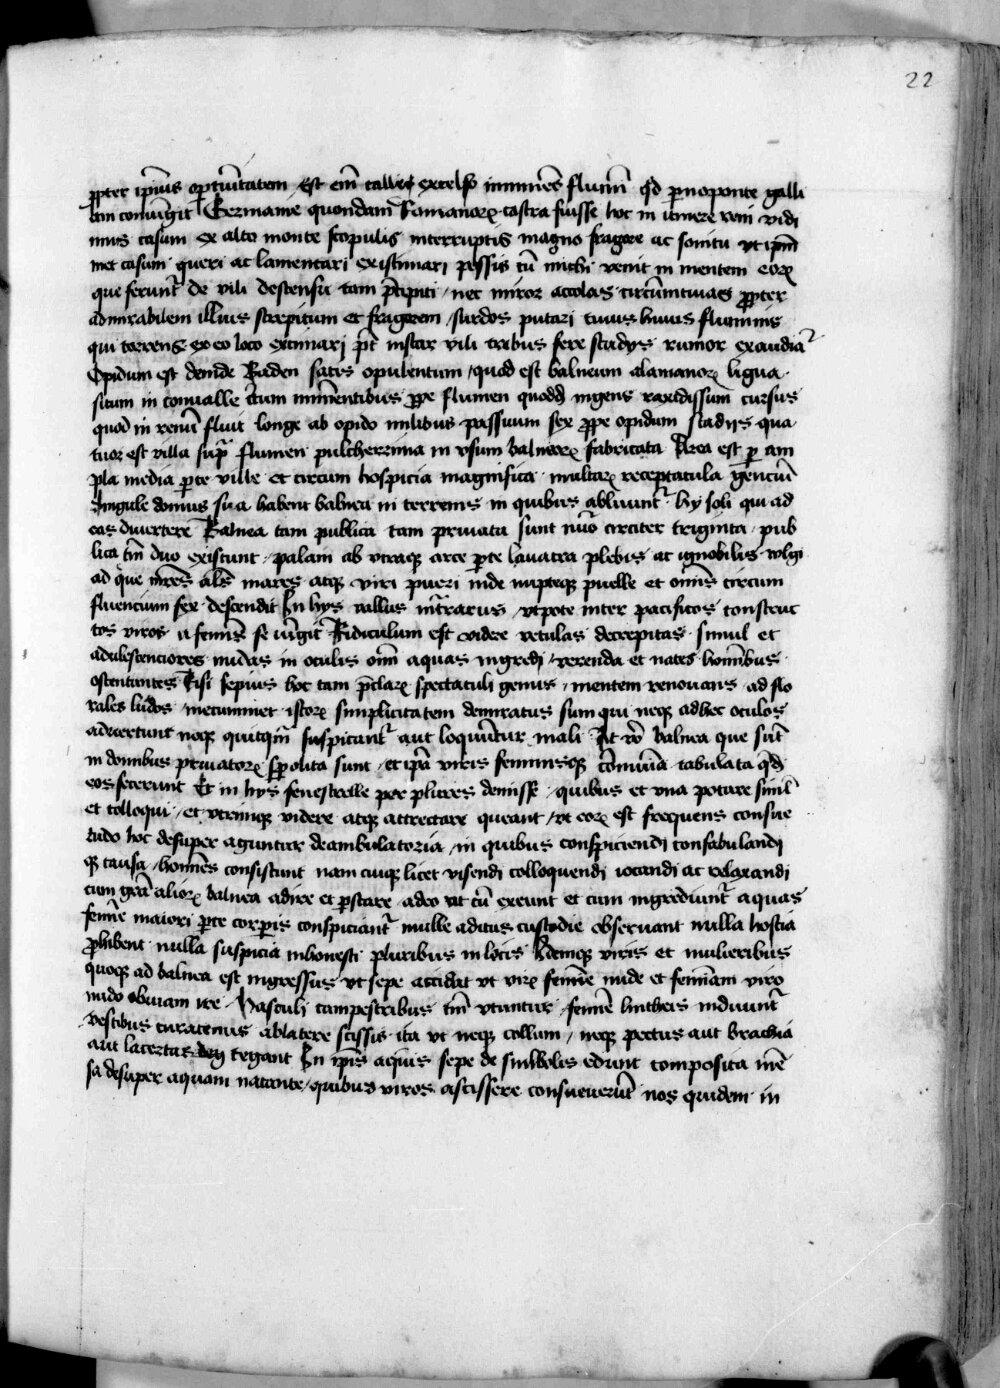 22
ꝓpter ipīus optūitatem Est em̄ callis excelso iminēs flumī qd̄ p̄ vno ponte galli
am convūgit Germanie quondam Romanorꝝ castra fuisse hoc in itinere reni vidi
mus casum ex alto monte scopulis interruptis magno fragore ac sonitu vt ipm̄
met casum queri ac lamentari existimari possis tū michi venit in mentem eorꝝ
que ferunt̉ de vili descensu tam p̄cipiti nec miror accolas circūmcivas ꝓpter
admirabilem illius strepitum et fragorem surdos putari cuius huius fluminis
qui torrens ex eo loco extimari pt̄ instar vili tribus fere stadys rumor exaudiat̉
Opidum est deinde Baden satis opulentum quod est balneum alamanorꝝ ligua
situm in convalle c̄tum iminentibus ꝓpe flumen quodd̄ ingens raxidissum cursus
quod in renū fluit longe ab opido milibus passuum sex ꝓpe opidum stadijs qua
tuor est villa supͣ flumen pulcherrima in vsum balneorꝝ fabricata Area est p̄ am
pla media p̄te ville et circum hospicia magnifica multarꝝ receptacula genciū
Singule domus sua habent balnea in terrenis in quibus abluunt̉ hy soli qui ad
eas divertere Balnea tam publica tam privata sunt nūo circiter triginta pub
lica tm̄ duo existunt palam ab vtraqꝫ arce p̄te lavacra plebis ac ignobilis volgi
ad que m̄res als̄ mares atqꝫ viri pueri inde nupteqꝫ puelle et omīs circum
fluencium fex descendit In hys vallus int̄rarus vtpote inter pacificos construc
tos viros a femīs se iūgit Ridiculum est videre vetulas decrepitas simul et
adulescenciores nudas in oculis oīm aquas ingredi verenda et nates homībus
ostentantes Risi sepius hoc tam p̄clarꝝ spectaculi genus mentem renovans ad flo
rales ludos mecummet istorꝝ simplicitatem demiratus sum qui neqꝫ adhec oculos
advertunt neqꝫ quitqm̄ suspicant̉ aut loquūtur mali At vo̊ balnea que sūt
in domibus privatorꝝ ꝑpolita sunt et ipā viris feminisqꝫ cōmunia tabulata qd̄
eos secernunt Et in hys fenestrelle per plures demisse quibus et vna potare siml̄
et colloqui et vtrimqꝫ videre atqꝫ attrectare queant vt eorꝝ est frequens consue
tudo hoc desuper aguntur deambulatoria in quibus conspiciendi confabulandi
qꝫ causa homīes consistunt nam cuiqꝫ licet visendi colloquendi iocandi ac relaxandi
cum gr̄a aliorꝝ balnea adire et p̄stare adeo vt cū exeunt et cum ingrediunt̉ aquas
femīe maiori p̄te corp̄is conspiciant̉ nulle aditus custodie observant nulla hostia
ꝓhibent nulla suspicia inhonesti pluribus in locis Idemqꝫ viris et mulieribus
quoqꝫ ad balnea est ingressus vt sepe accidat vt virꝝ femīe nude et feminam viro
nudo obviam ire Masculi campestribus tm̄ vtuntur femīe lintheis induunt̉
vestibus curatenus ablatere scissis ita vt neqꝫ collum neqꝫ pectus aut brachia
aut lacertas tegant In ipīs aquis sepe de simbolis edunt composita mē
sa desuper aquam natante quibus viros ascissere consueverūt nos quidem in